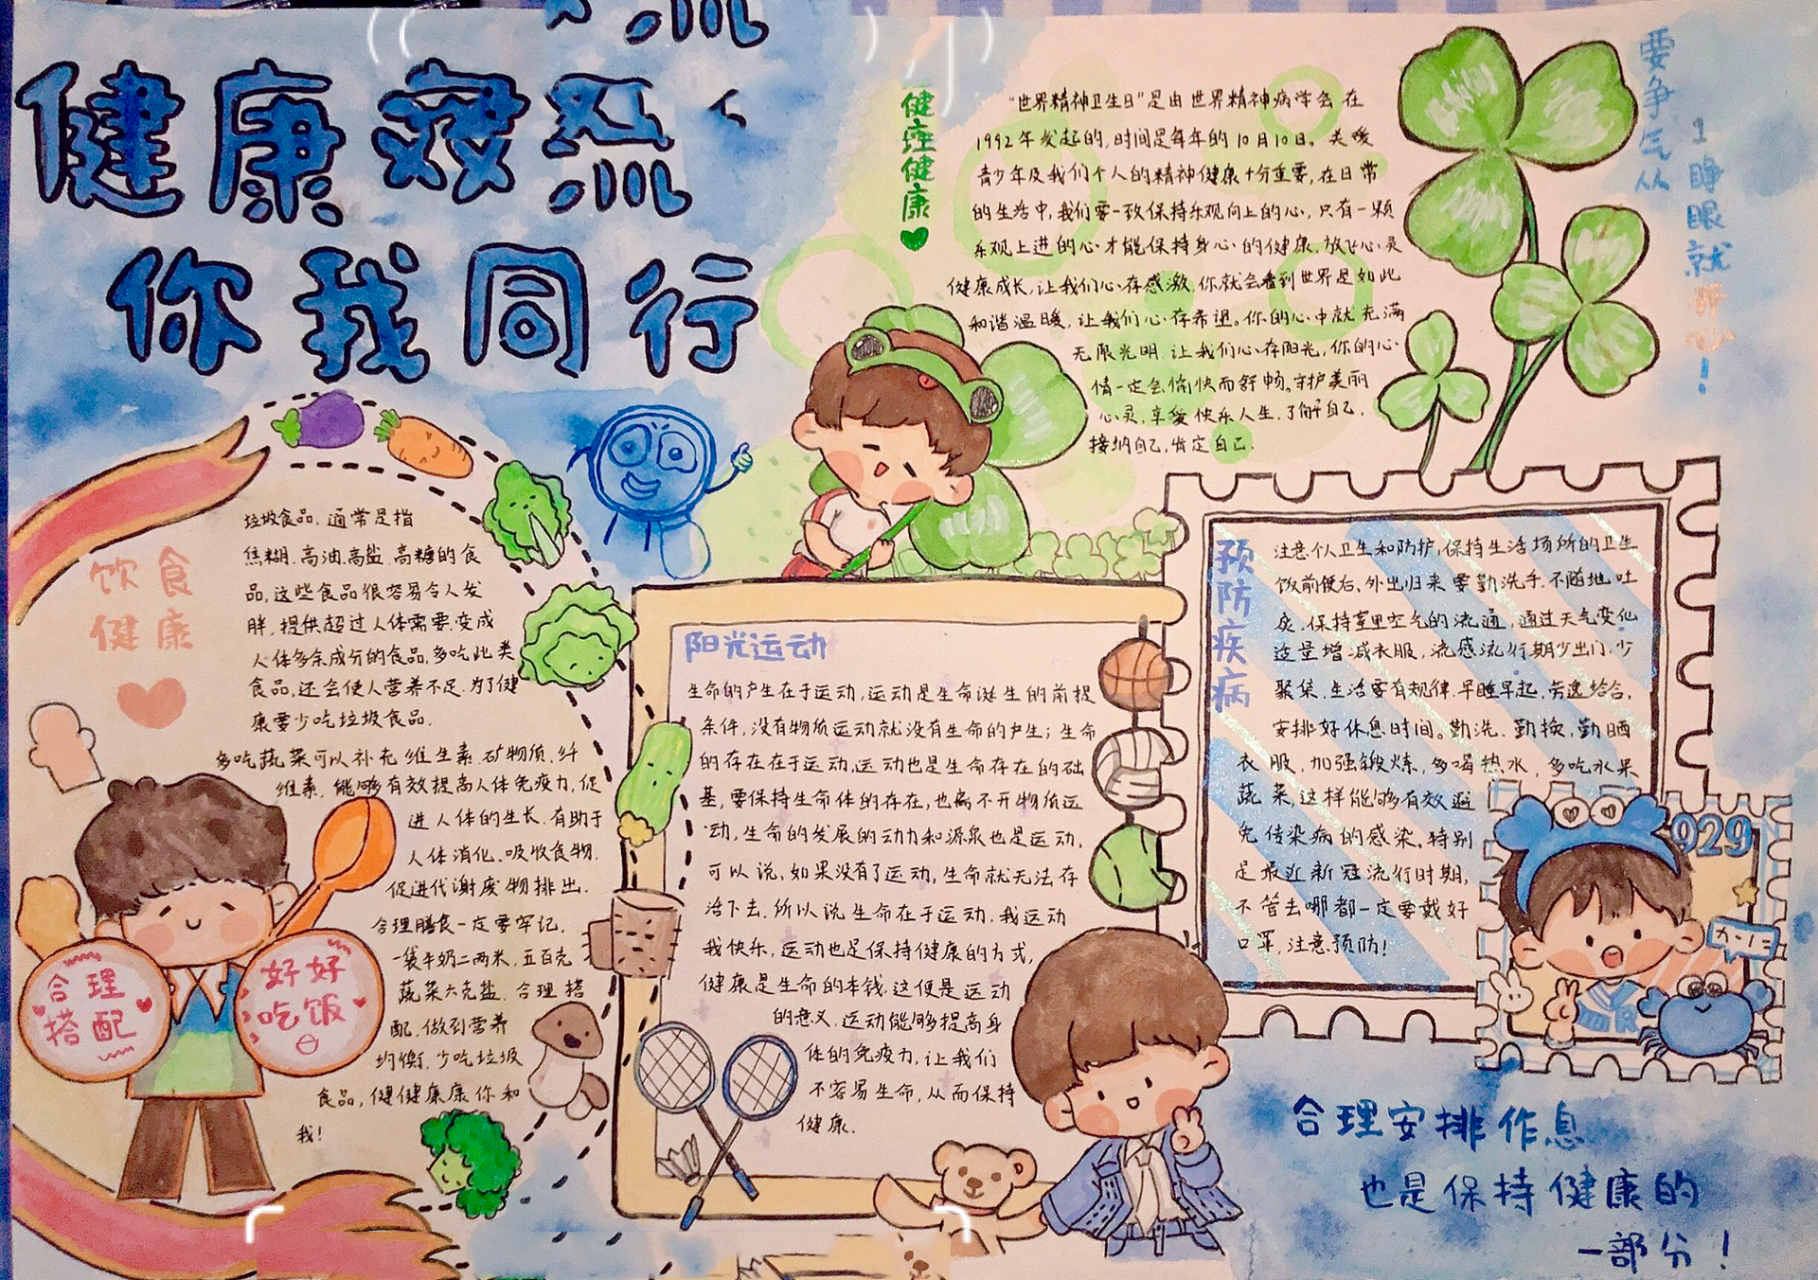 健康
你我同行
健康
"世界精神卫生日"是由世界精神病学会在
1992年发起的,时间是每年的10月10日。关爱
青少年及我们个人的精神健康十分重要,在日常
的生活中,我们要一致保持乐观向上的心,只有一颗
乐观上进的心才能保持身心的健康,放飞心灵
健康成长,让我们心存感激,你就会看到世界是如此
和谐温暖,让我们心存希望。你的心中就充满
无限光明,让我们心存阳光,你的心
情一定会愉快而舒畅。守护美丽
心灵,享受快乐人生,了解自己,
接纳自己,肯定自己.
要争气从
1睁眼就
!
饮食
健康
垃圾食品,通常是指
焦糊,高油,高盐,高糖的食
品,这些食品很容易令人发
胖,提供超过人体需要,变成
人体多余成分的食品,多吃此类
食品,还会使人营养不足.为了健
康要少吃垃圾食品.
多吃蔬菜可以补充维生素,矿物质,纤
维素,能够有效提高人体免疫力,促
进人体的生长,有助于
人体消化、吸收食物,
促进代谢废物排出.
合理膳食一定要牢记,
一袋牛奶二两米,五百克
蔬菜六克盐,合理搭
配,做到营养
均衡,少吃垃圾
食品,健健康康你和
我!
合理
搭配
好好
吃饭
阳光运动
生命的产生在于运动,运动是生命诞生的前提
条件,没有物质运动就没有生命的产生;生命
的存在在于运动,运动也是生命存在的础
基,要保持生命体的存在,也离不开物质运
动,生命的发展的动力和源泉也是运动,
可以说,如果没有了运动,生命就无法存
活下去,所以说生命在于运动.我运动
我快乐,运动也是保持健康的方式,
健康是生命的本钱,这便是运动
的意义,运动能够提高身
体的免疫力,让我们
不容易生命,从而保持
健康.
预防疾病
注意个人卫生和防护,保持生活场所的卫生
饭前便后,外出归来要勤洗手.不随地吐
痰.保持室里空气的流通,通过天气变化
适量增减衣服,流感流行期少出门,少
聚集.生活要有规律.早睡早起,劳逸结合,
安排好休息时间。勤洗、勤换,勤晒
衣服,加强锻炼,多喝热水,多吃水果
蔬菜,这样能够有效避
免传染病的感染.特别
是最近新冠流行时期,
不管去哪都一定要戴好
口罩,注意预防!
929
合理安排作息
也是保持健康的
一部分!